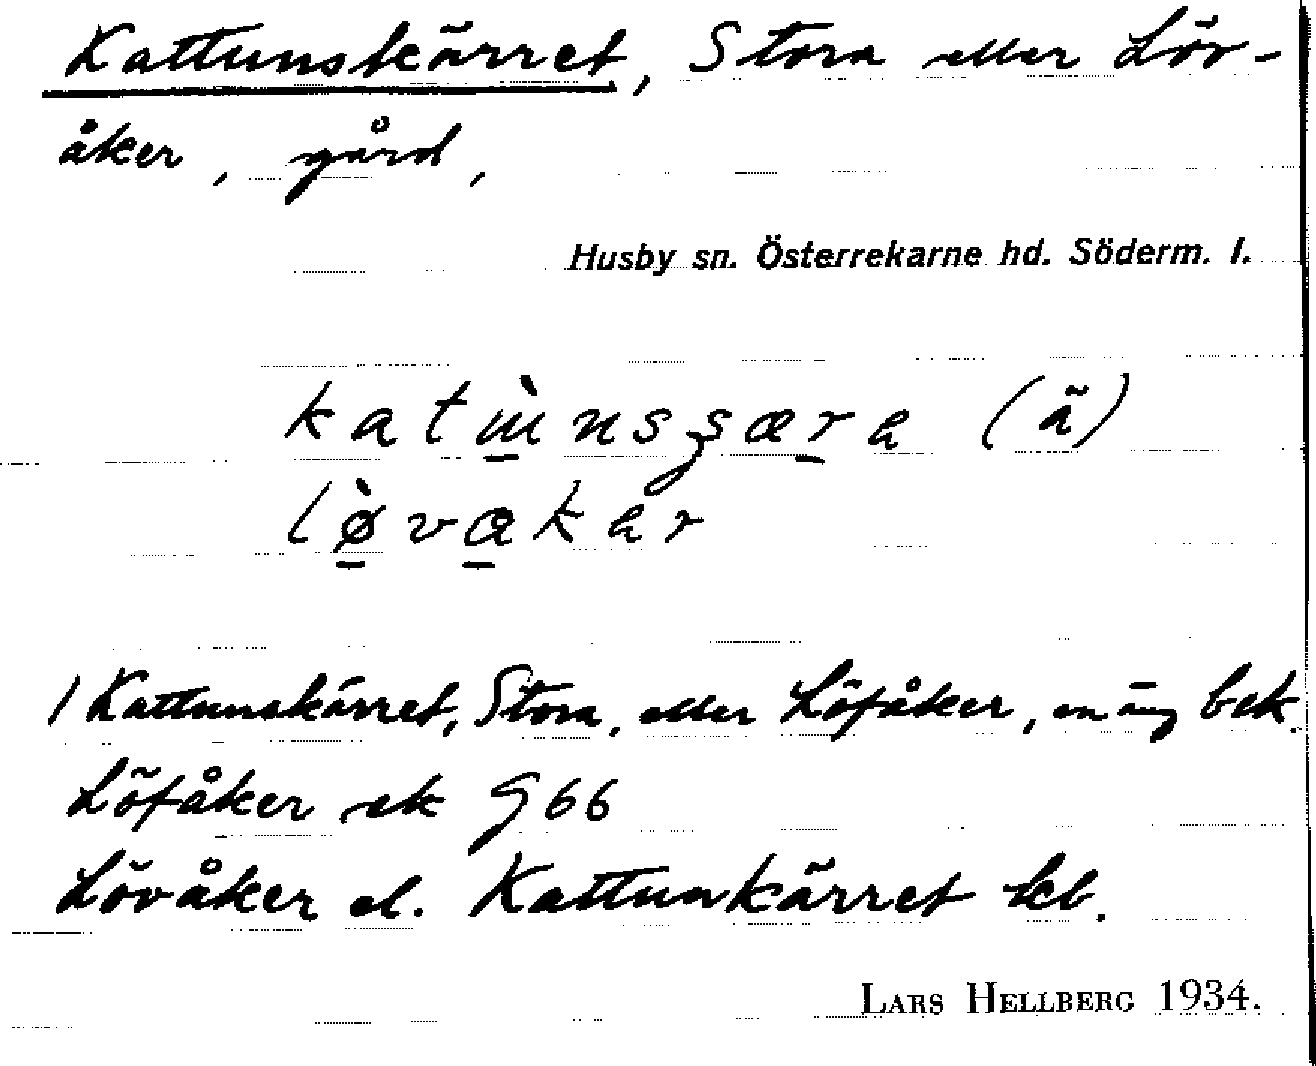 Kattunskärret, Stora eller Löv-
åker, gård,
Husby sn. Österrekarne hd. Söderm. l.
katùnsʂæra (ä)
lø̀våkar
/ Kattunskärret, Stora, eller Löfåker, en äng bek.
Löfåker ek G66
Lövåker el. Kattunkärret kb.
LARS HELLBERG 1934.